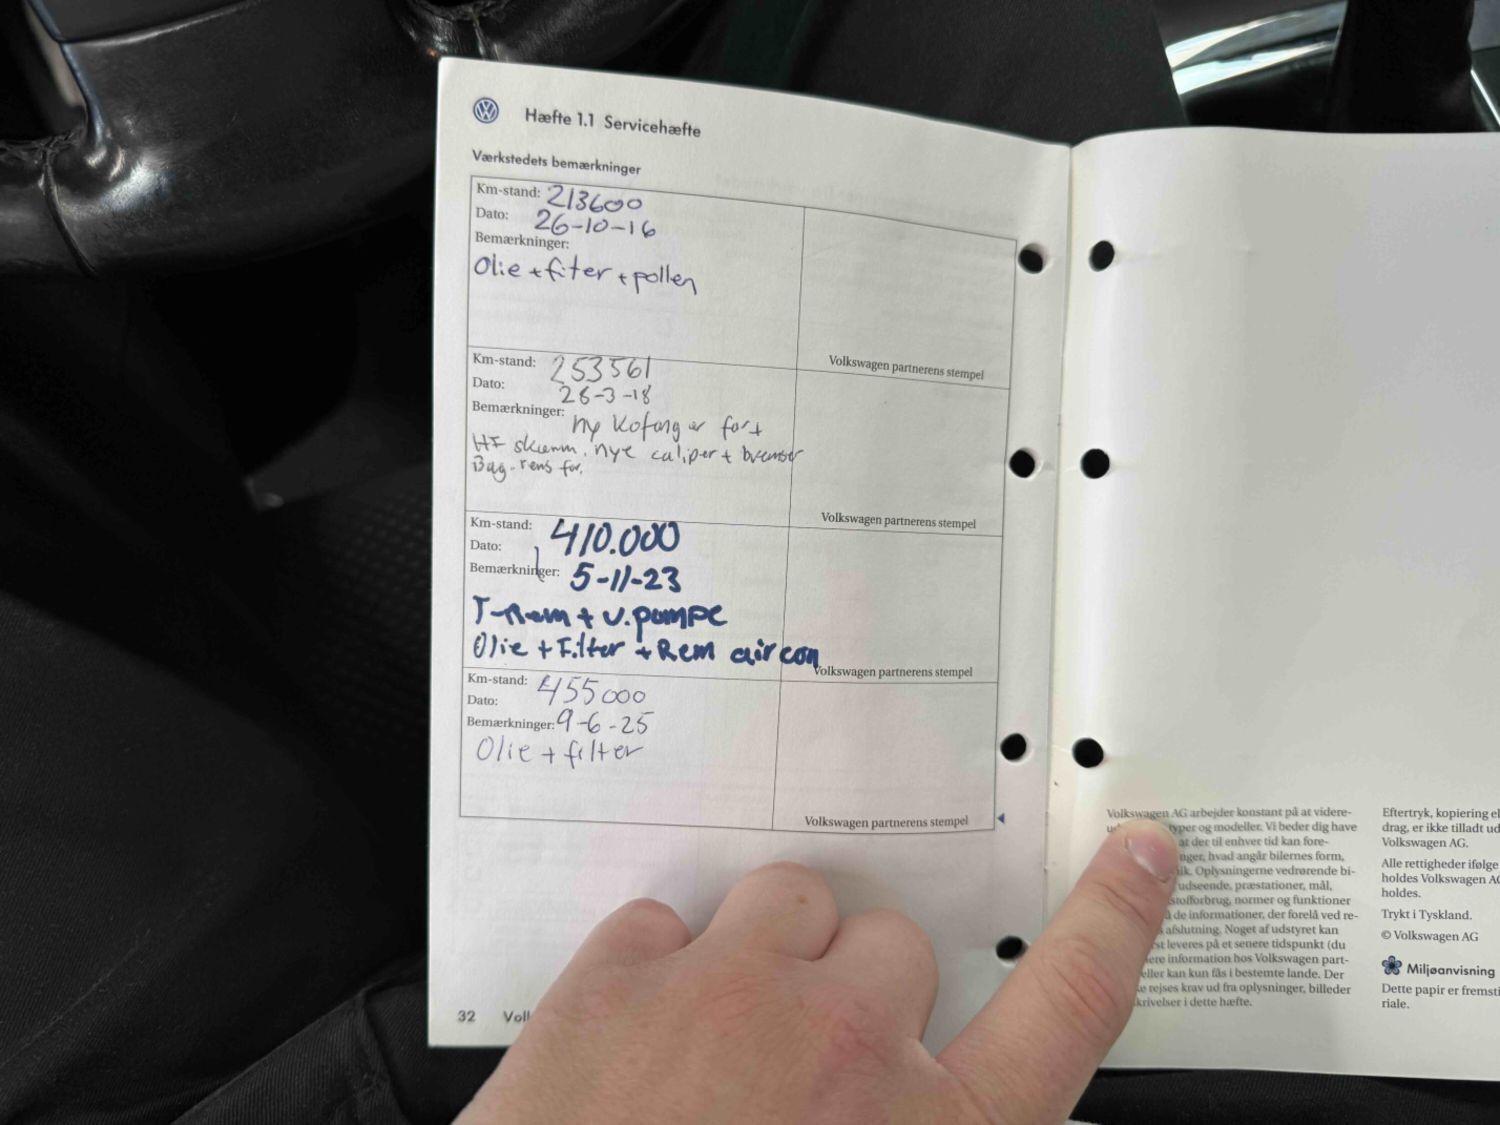 Hæfte 1.1 Servicehæfte
Værkstedets bemærkninger
Km-stand: 213600
Dato: 26-10-16
Bemærkninger:
Olie + fiter + pollen
Volkswagen partnerens stempel
Km-stand: 253561
Dato: 26-3-18
Bemærkninger: ny Kofanger for +
HF skærm. nye caliper + bremser
Bag. rens for.
Volkswagen partnerens stempel
Km-stand: 410.000
Dato:
Bemærkninger: 5-11-23
T-Rem + V.pumpe
Olie + Filter + Rem air con
Volkswagen partnerens stempel
Km-stand: 455000
Dato:
Bemærkninger: 9-6-25
Olie + filter
Volkswagen partnerens stempel
32
Volkswagen AG arbejder konstant på at videre-
typer og modeller. Vi beder dig have
at der til enhver tid kan fore-
hvad angår bilernes form,
Oplysningerne vedrørende bi-
udseende, præstationer, mål,
normer og funktioner
de informationer, der forelå ved re-
afslutning. Noget af udstyret kan
leveres på et senere tidspunkt (du
information hos Volkswagen part-
eller kan kun fås i bestemte lande. Der
rejses krav ud fra oplysninger, billeder
i dette hæfte.
Eftertryk, kopiering
drag, er ikke tilladt
Volkswagen AG.
Alle rettigheder ifølge
holdes Volkswagen
holdes.
Trykt i Tyskland.
© Volkswagen AG
Miljøanvisning
Dette papir er
riale.